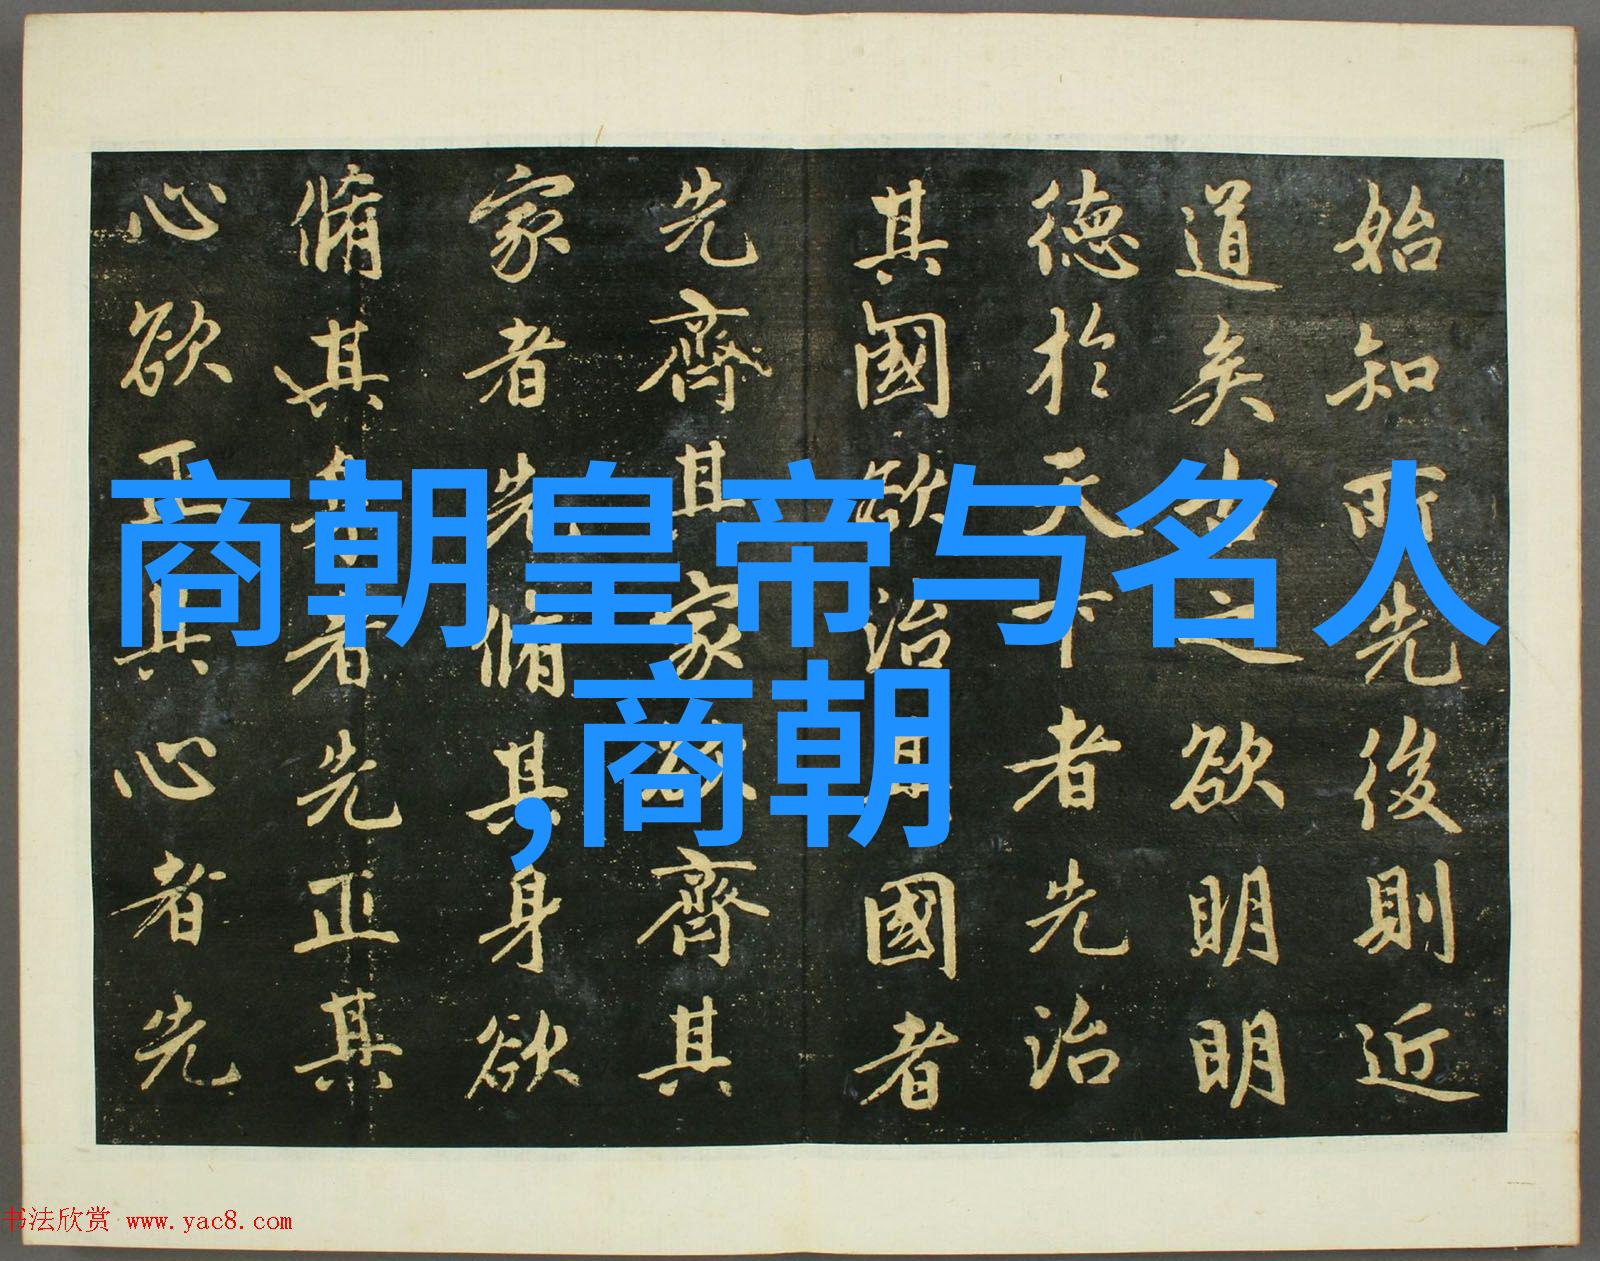 商朝皇帝与名人
,商朝
始知所先後則近
道矣古之欲明明
德於天下者先治
其國欲治其國者
先齊其家欲齊其
家者先脩其身欲
脩其身者先正其
心欲正其心者先
书法欣赏 www.yac8.com